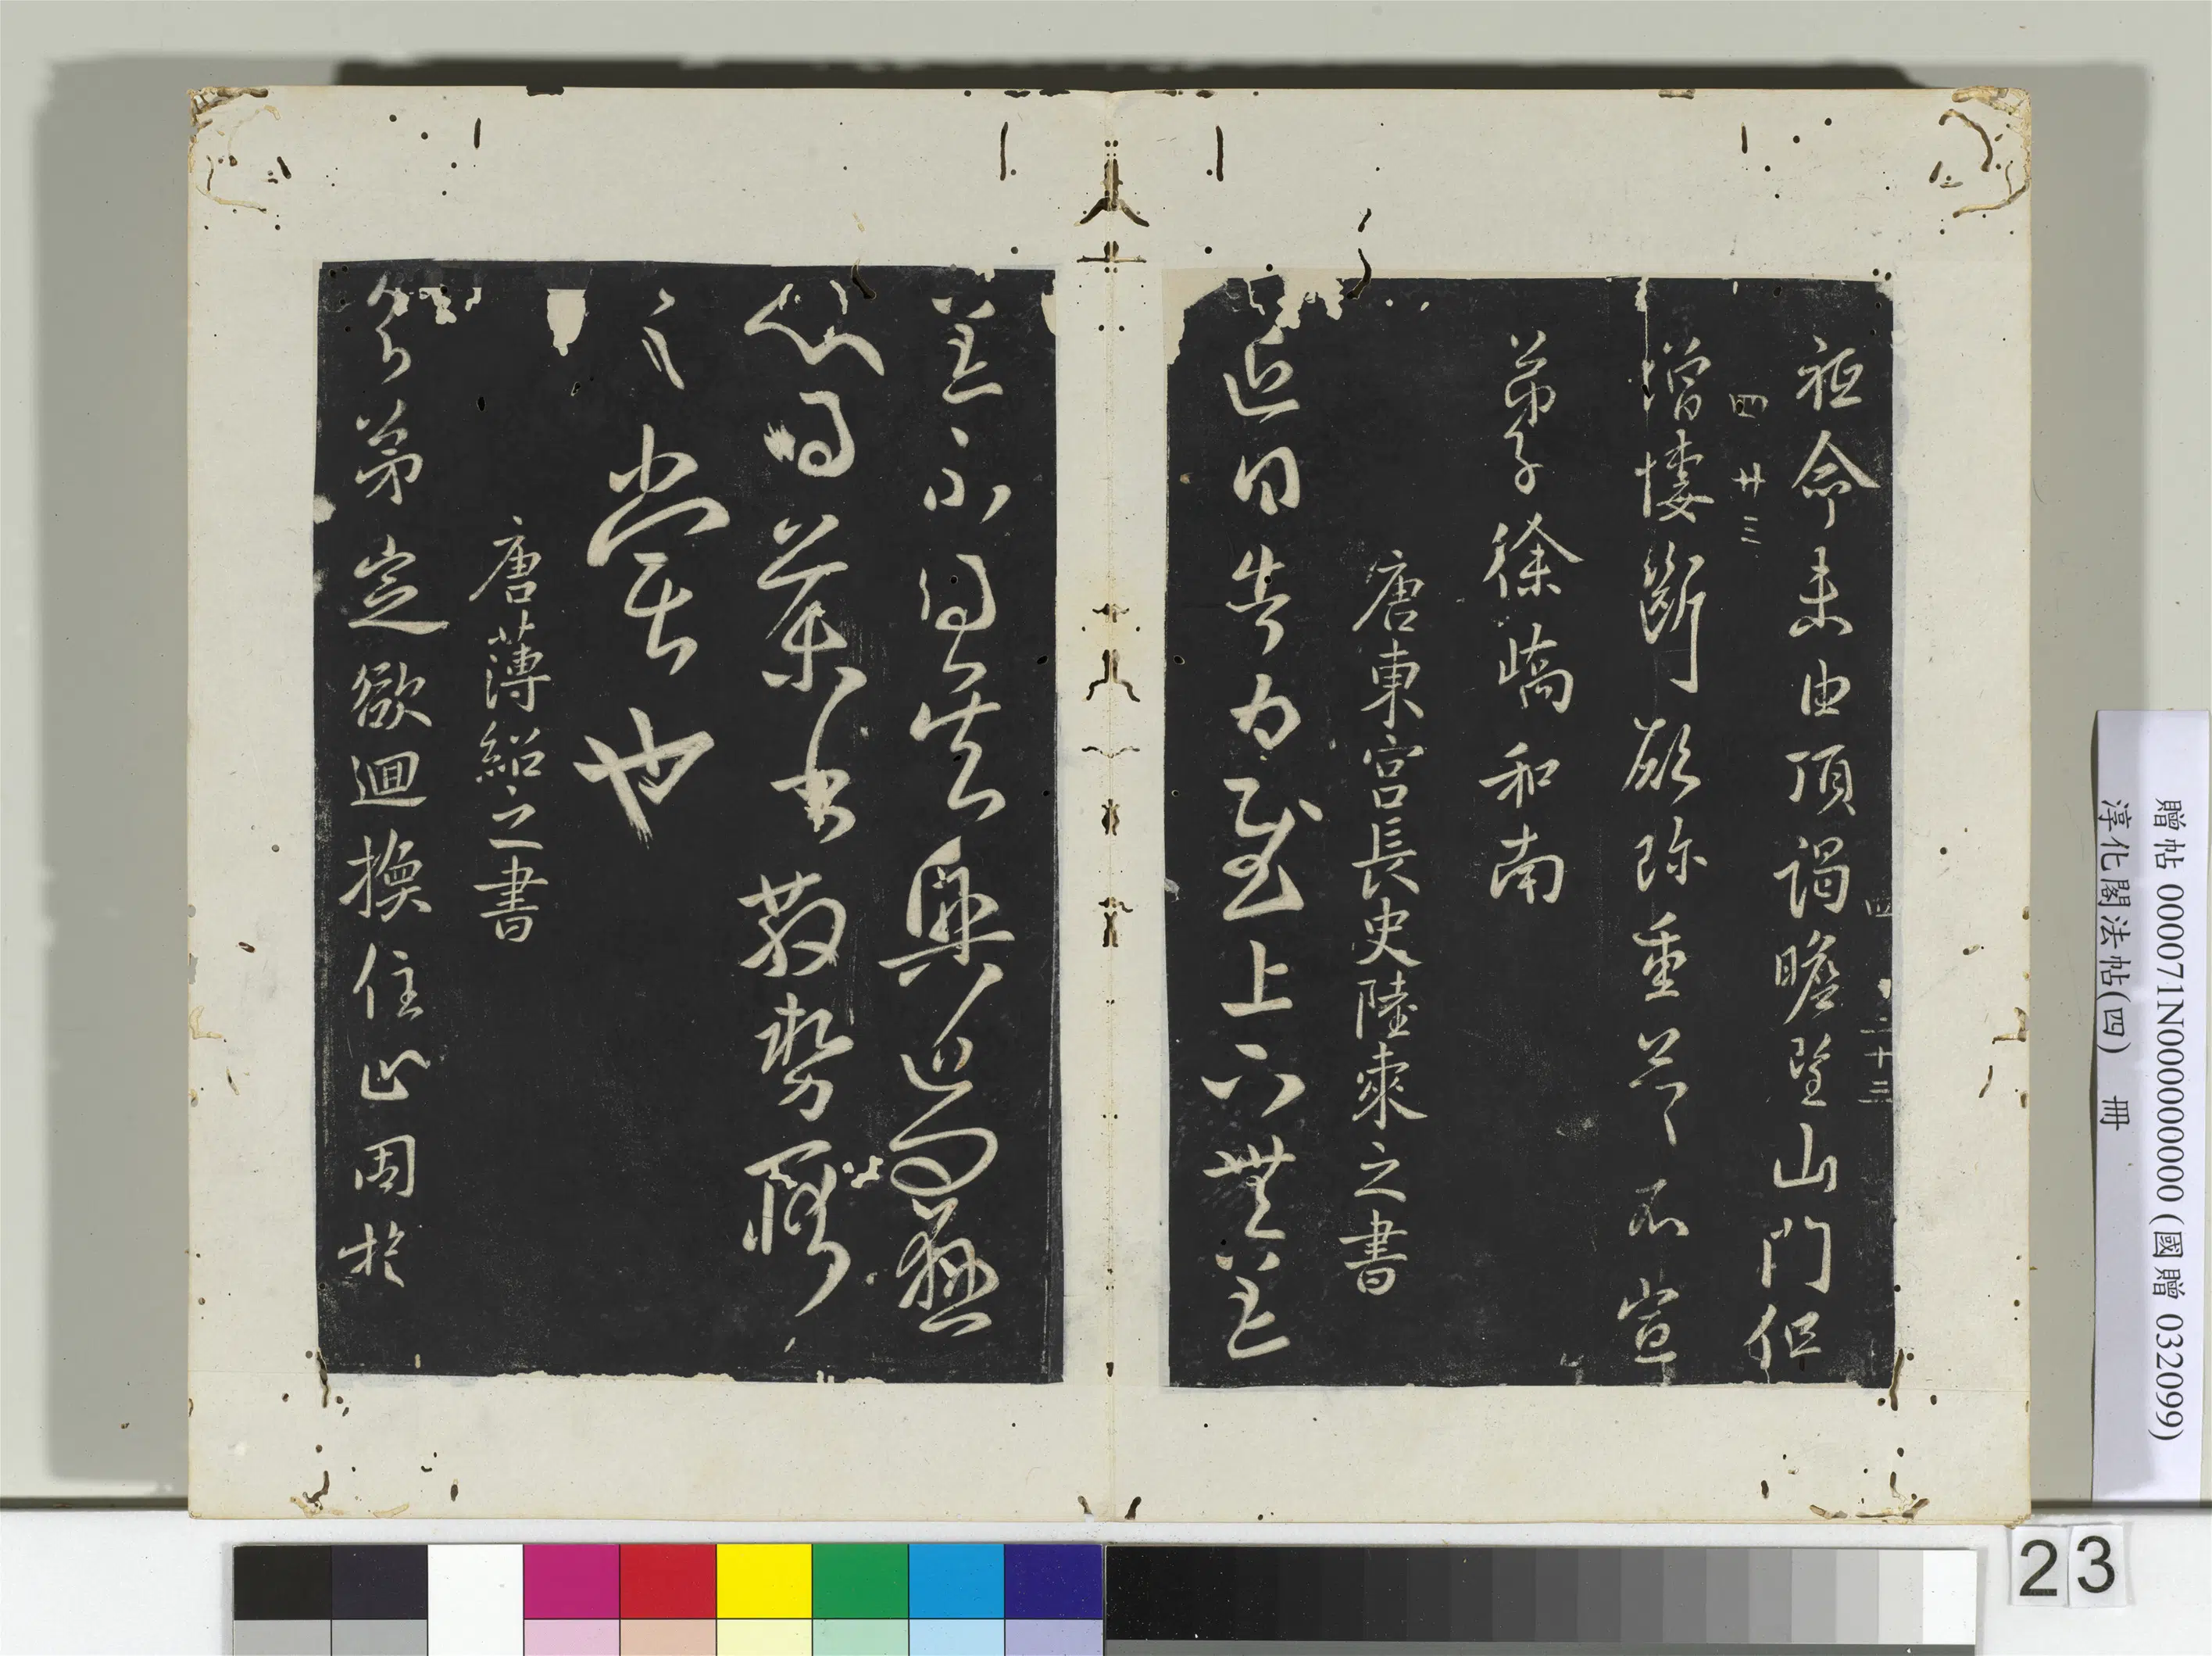 祗命未由頂謁瞻望山門但
增悽斷願珎重不宣
弟子徐嶠和南
唐東宮長史陸柬之書
近日告上下無恙
不得吳興近問懸
心得書散勢
之也
唐薄紹之書
弟定欲迴換住止周於
四 廿三
四 二十三
贈帖 000071N000000000 (國贈 032099)
淳化閣法帖(四) 冊
23